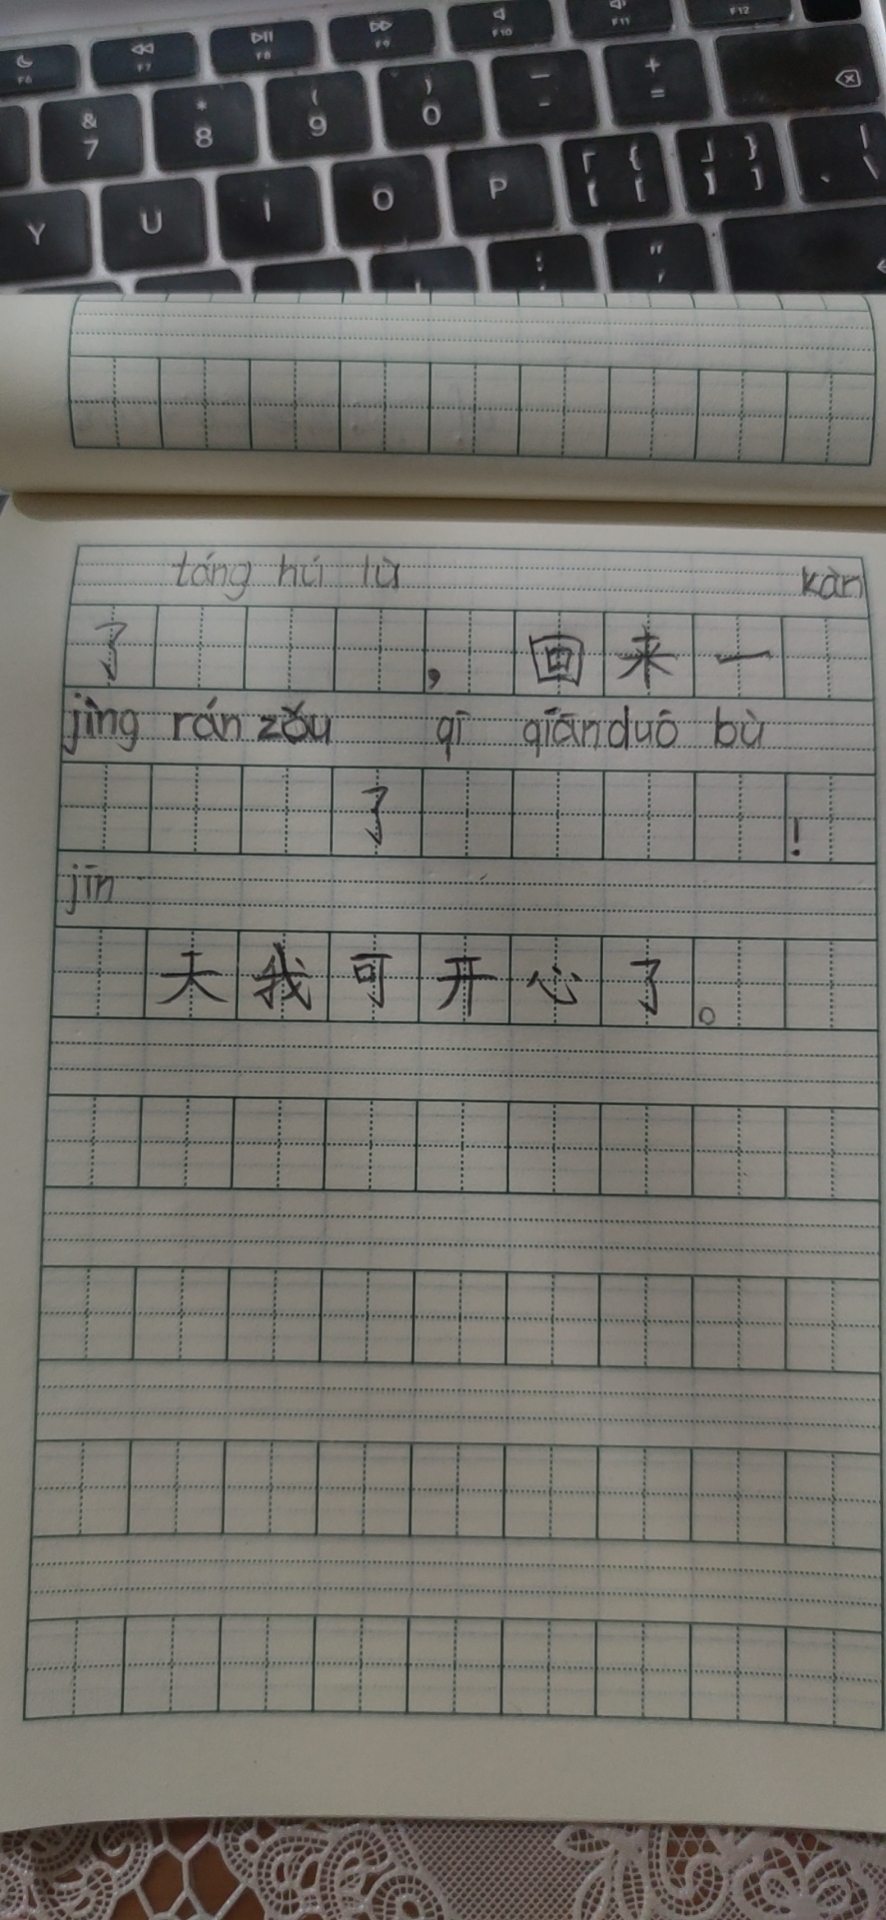 F6 F7 F8 F9 F10 F11 F12
& 7 * 8 ( 9 ) 0 — - + =
Y U I O P 「 【 { [ 」 】 } ] 、 | \
: ; " '
táng hú lù kàn
了 ， 回来一
jìng rán zǒu qī qiān duō bù
了 ！
jīn
天我可开心了。